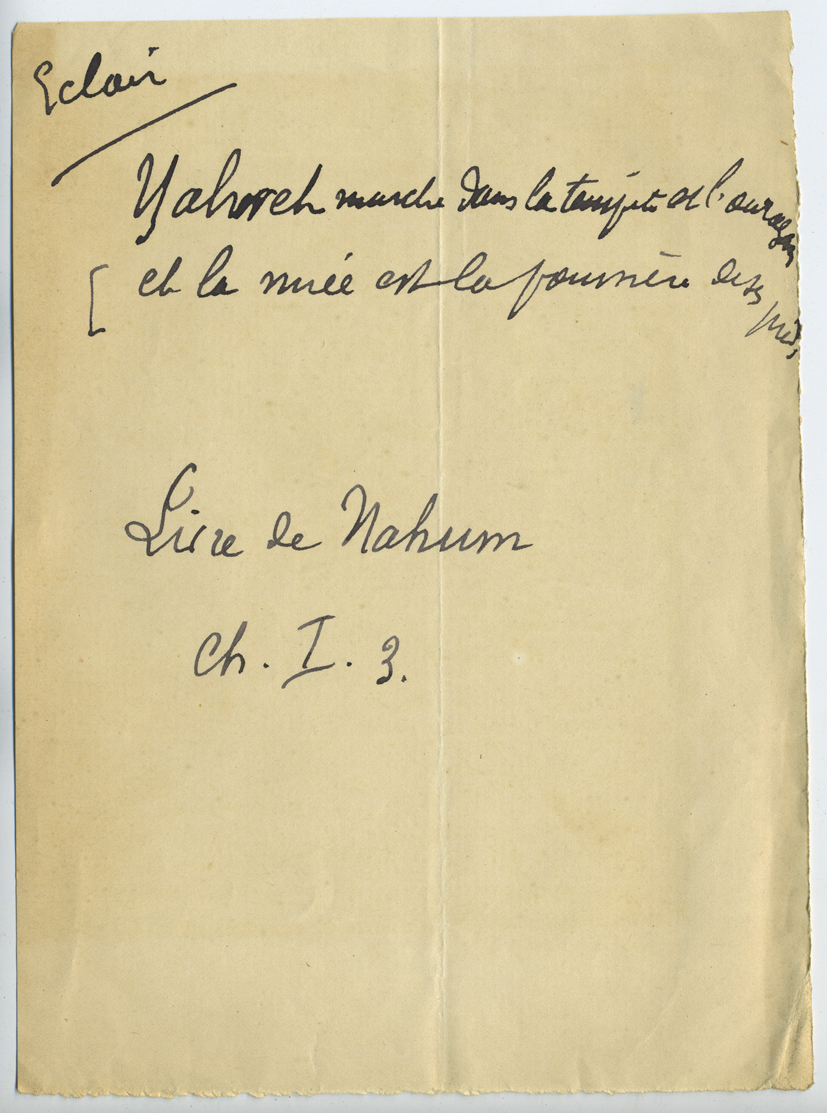 Eclair
Yahweh marche dans la tempête et l'ouragan
[ et la nuée est la poussière de ses
pieds,
Livre de Nahum
ch. I. 3.